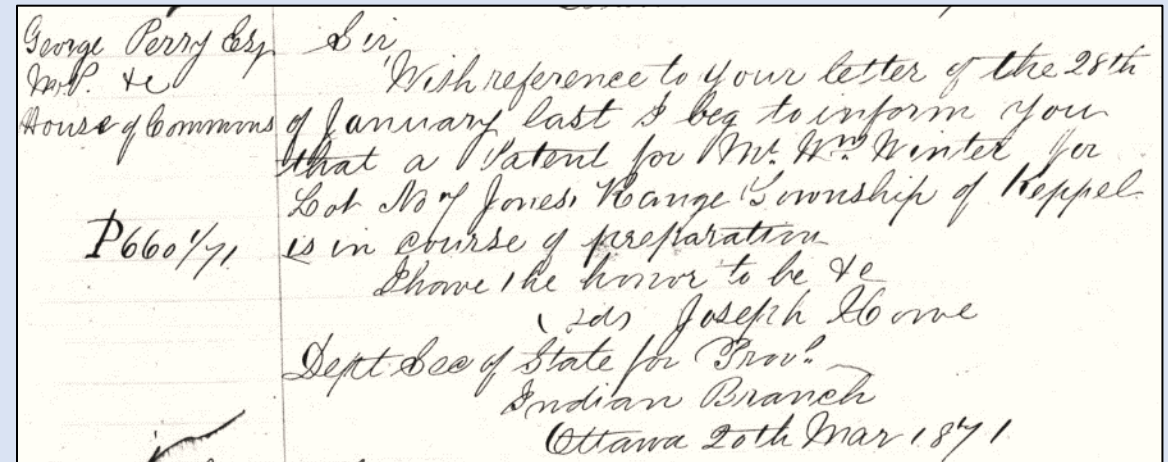 George Perry Esq
M.P. &c
House of Commons
P660 1/71
Sir,
With reference to your letter of the 28th
of January last I beg to inform you
that a Patent for Mr. Wm Winter for
Lot No 7 Jones' Range Township of Keppel
is in course of preparation
I have the honor to be &c
(sd) Joseph Howe
Dept Sec of State for Prov.s
Indian Branch
Ottawa 20th Mar 1871